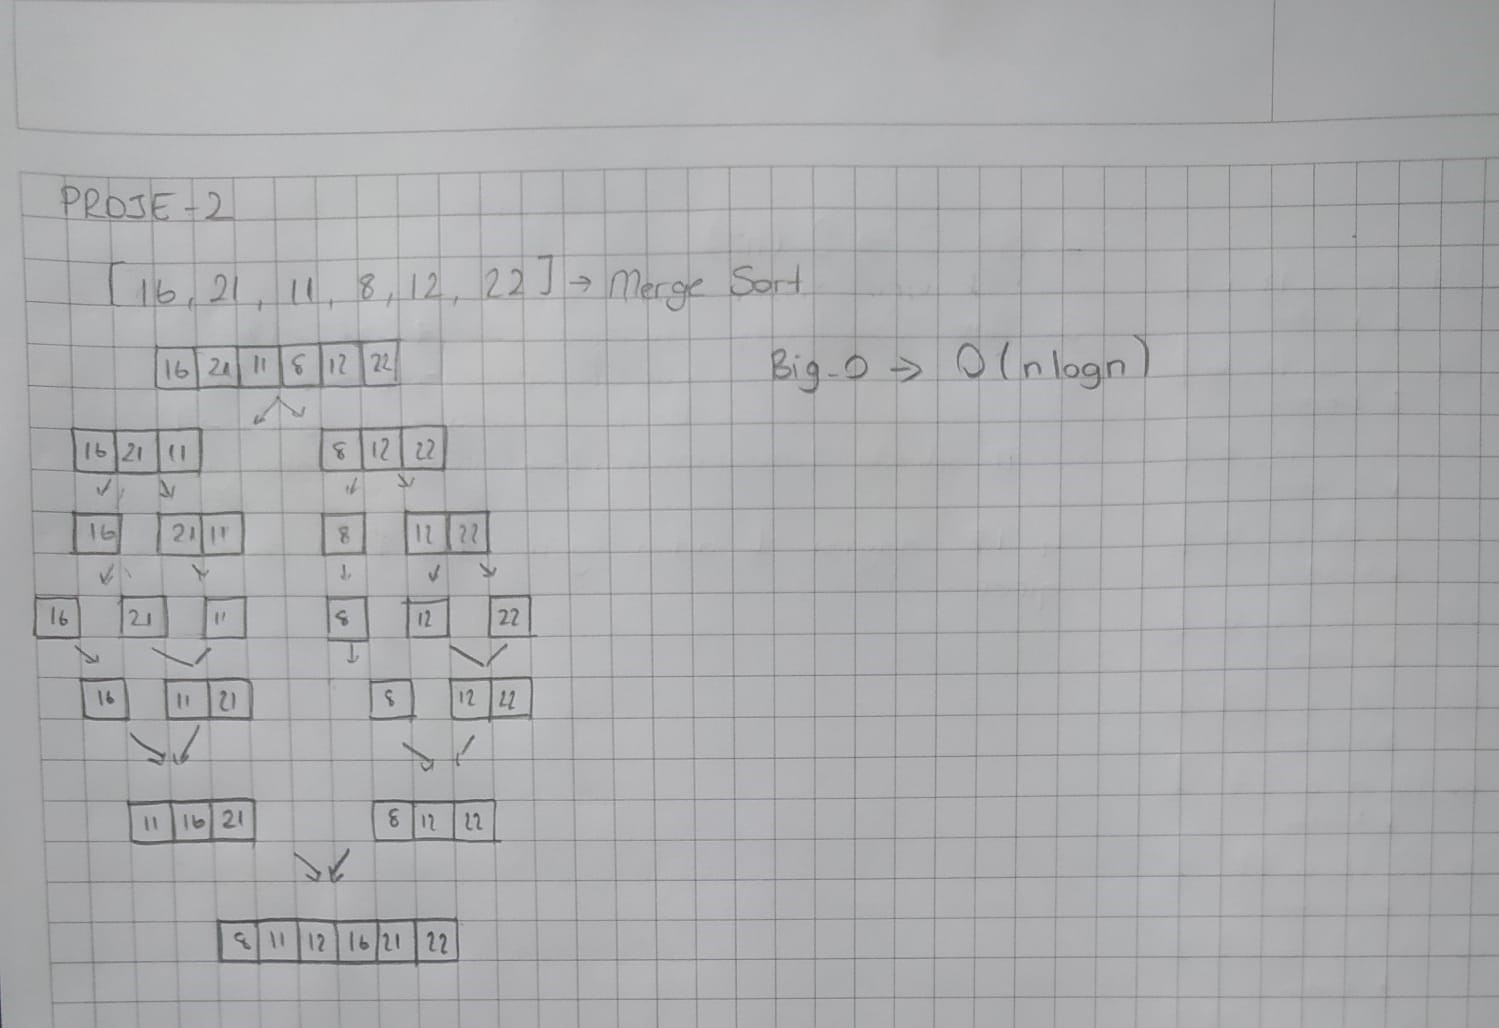 PROJE-2
[16, 21, 11, 8, 12, 22] → Merge Sort
16 21 11 8 12 22
Big-O → O(n logn)
16 21 11 8 12 22
16 21 11 8 12 22
16 21 11 8 12 22
16 11 21 8 12 22
11 16 21 8 12 22
8 11 12 16 21 22